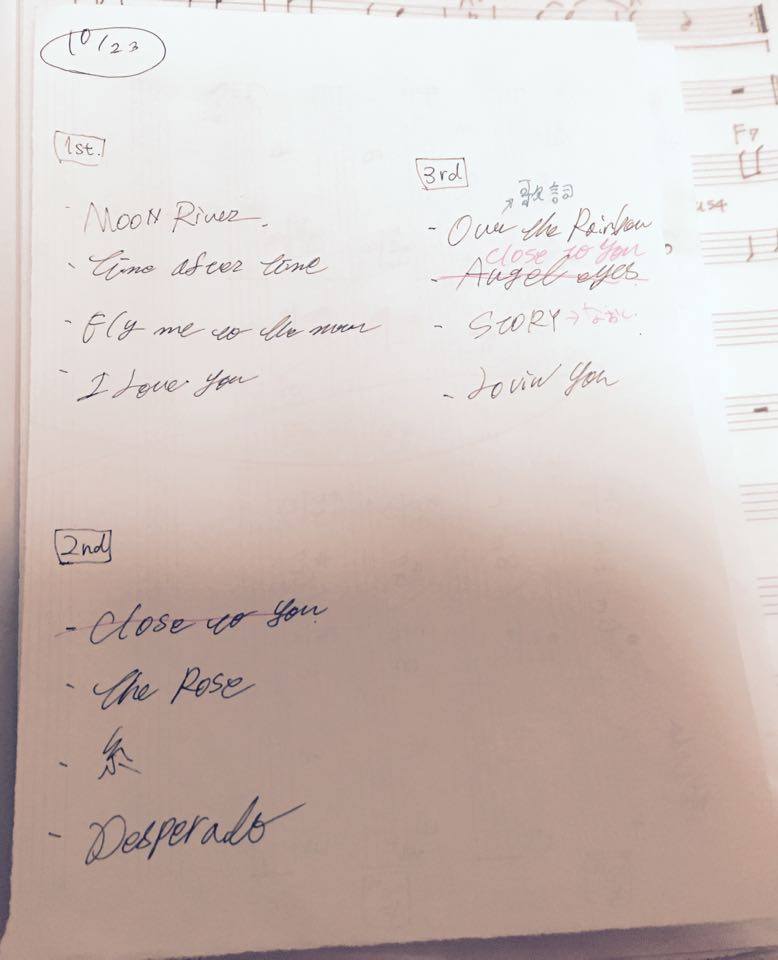 10/23
1st.
- Moon River.
- Time After Time
- Fly me to the moon
- I Love You
2nd
- Close to You
- The Rose
- 糸
- Desperado
3rd
↗ 歌詞
- Over the Rainbow
Close to You
- Angel eyes
- STORY →なおし
- Lovin You
F7
us4